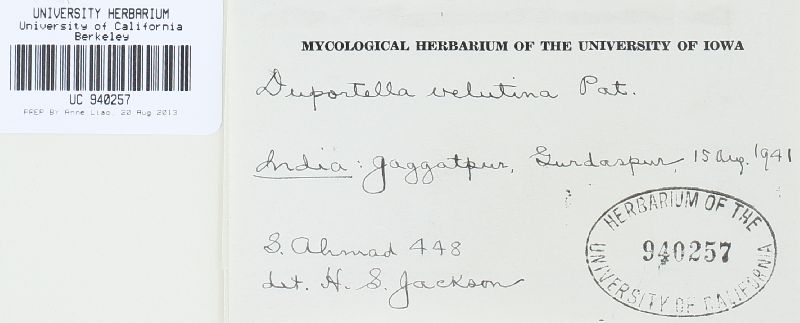 UNIVERSITY HERBARIUM
University of California
Berkeley
UC 940257
PREP BY Anne Liao, 20 Aug 2013
MYCOLOGICAL HERBARIUM OF THE UNIVERSITY OF IOWA
Duportella velutina Pat.
India: Jaggatpur, Gurdaspur, 15 Aug. 1941
S. Ahmad 448
det. H. S. Jackson
HERBARIUM OF THE
940257
UNIVERSITY OF CALIFORNIA